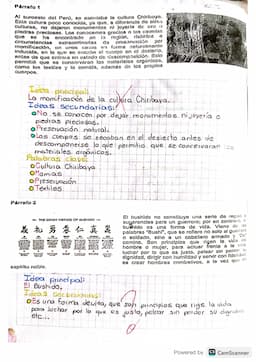 Párrafo 1
Al suroeste del Perú, se asentaba la cultura Chiribaya.
Esta cultura poco conocida, ya que, a diferencia de otras
culturas, no dejaron monumentos ni joyería de oro o
piedras preciosas. Las
que se ha encontrado en la región, debido a
circunstancias extraordinarias de
momificación, en unos casos en forma naturalmente
inducida, en la que se
antes de que entrara en estado de descomposición. Esto
permitió que se conservaran los materiales orgánicos,
como los textiles y la comida, además de los propios
cuerpos.
Idea principal:
La momificación de la cultura Chiribaya.
Ideas secundarias:
No se conocen por dejar monumentos ni joyería o
piedras preciosas.
Preservación natural.
Los cuerpos se secaban en el desierto antes de
descomponerse lo que permitía que se conservaran los
materiales orgánicos.
Palabras clave:
Cultura Chiribaya
Momias
Preservación
Textiles
Párrafo 2
THE SEVEN VIRTUES OF BUSHIDO
El bushido no constituye una serie de reglas o
sugerencias para un guerrero; por el contrario, el
bushido es una forma de vida. Viene de
palabras "Bushi", que se refiere no solo al guerrero
o soldado, sino a un caballero armado y "Do"
camino. Son principios que rigen la vida
hombre o mujer, para actuar frente a la
luchar por lo que es justo, pelear sin perder
dignidad, dirigir con humildad y servir con
es crear hombres imbatibles, a la vez que
espíritu noble.
Idea principal:
El Bushido.
Ideas secundarias:
Es una forma de vida, que son principios que rige la vida
para luchar por lo que es justo, pelear sin perder su dignidad
etc...
Powered by CamScanner